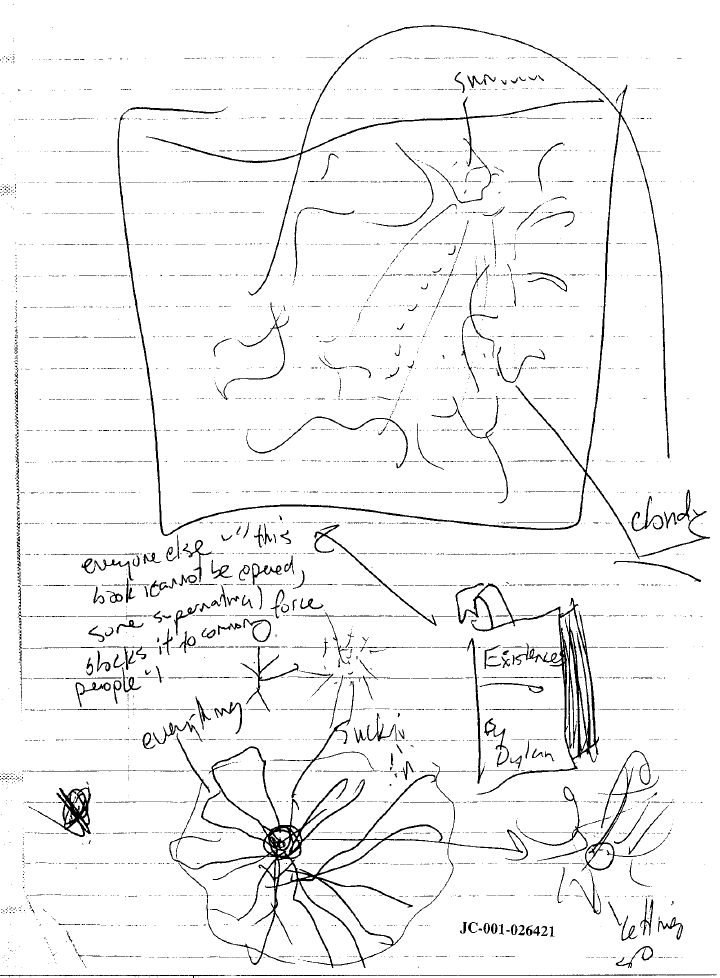 sun
cloudy
everyone else - "this
book cannot be opened,
some supernatural force
blocks it to common
people"
Existences
By
Dylan
everything
suckin
in
letting
go
JC-001-026421